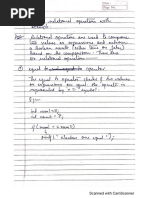 relational operators with
example
Ans- Relational operators are used to compare
two values or expressions and return
a boolean result (either true or false)
based on the comparison. There are
the relational operators
equal operator
The equal to operator checks if two values
or expressions are equal the operator is
represented by == symbol
Ex-
int num1=5;
int num2=5;
if (num1 == num2)
Scanned with CamScanner